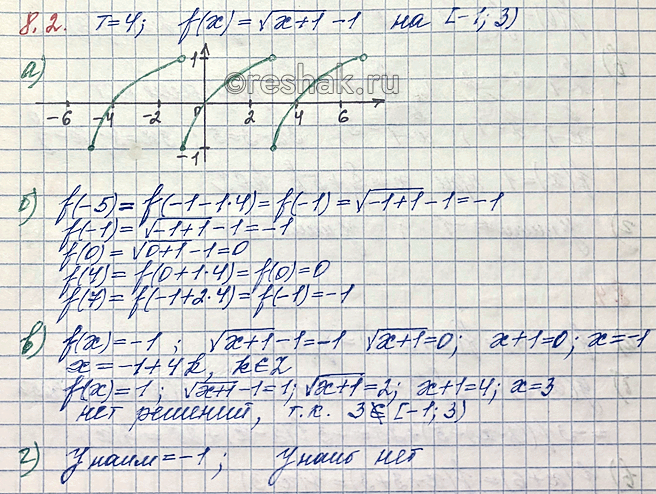 8.2. T=4; f(x)=√(x+1) -1 на [-1; 3)
а) 1
reshak.ru
-6 -4 -2 0 2 4 6
-1
б) f(-5)=f(-1-1·4)=f(-1)=√(-1+1) -1=-1
f(-1)=√(-1+1) -1=-1
f(0)=√(0+1) -1=0
f(4)=f(0+1·4)=f(0)=0
f(7)=f(-1+2·4)=f(-1)=-1
в) f(x)=-1; √(x+1) -1=-1 √(x+1)=0; x+1=0; x=-1
x=-1+4k, k∈Z
f(x)=1; √(x+1) -1=1; √(x+1)=2; x+1=4; x=3
нет решений, т.к. 3∉[-1; 3)
г) Yнаим=-1; Yнаиб нет